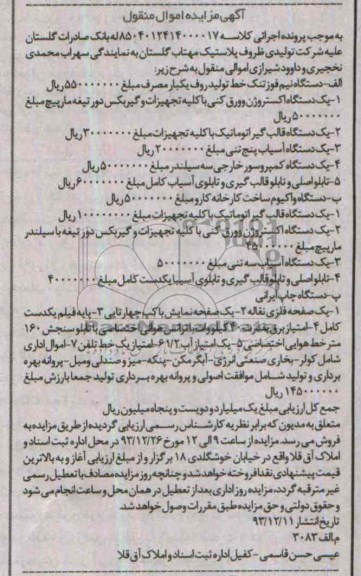 آگهی مزایده اموال منقول
به موجب پرونده اجرائی کلاسه ۸۵۰۴۰۱۲۴۱۴۰۰۰۰۱۷ له بانک صادرات گلستان
علیه شرکت تولیدی ظروف پلاستیک مهتاب گلستان به نمایندگی سهراب محمدی
نخجیری و داوود شیرازی اموالی منقول به شرح زیر:
الف-دستگاه نیم فوز تنک خط تولید روف یکبار مصرف مبلغ ۵۵۰۰۰۰۰۰۰ ریال
۱-یک دستگاه اکستروژن و ورق کنی با کلیه تجهیزات و گیربکس دور تیغه مارپیچ مبلغ
ریال
۲-یک دستگاه قالب گیر اتوماتیک با کلیه تجهیزات مبلغ ریال
۳-یک دستگاه آسیاب پنج تنی مبلغ ریال
۴-یک دستگاه کمپروسور خارجی سه سیلندر مبلغ ریال
۵-تابلو اصلی و تابلو قالب گیری و تابلوی آسیاب کامل مبلغ ریال
ب-دستگاه واکیوم ساخت کارخانه کارو مبلغ ریال
۱-یک دستگاه قالب گیر اتوماتیک با کلیه تجهیزات مبلغ ریال
۲-یک دستگاه اکستروژن و ورق کنی با کلیه تجهیزات و گیربکس دور تیغه با سیلندر
مارپیچ مبلغ ریال
۳-یک دستگاه آسیاب سه تنی مبلغ
۴-تابلو اصلی و تابلو قالب گیری و تابلوی آسیبا یکدست کامل مبلغ
پ-دستگاه چاپ ایرانی
۱-یک صفحه فلزی نقاله ۲-یک صفحه نمایش با کپ چهارتایی ۳-پایه فیلم یکدست
کامل ۴-امتیاز برق بقدرت ۴۰۰ کیلووات با ترانس هوائی اختصاصی با تابلو سنجش ۱۶۰
متر خط هوایی اختصاصی ۵-یک امتیاز آب ۶۱/۲-امتیاز یک خط تلفن ۷-اموال اداری
شامل کولر-بخاری صنعتی انرژی-آبگرمکن-پنکه-میز و صندلی و مبل-پروانه بهره
برداری و تولید شامل موافقت اصولی و پروانه بهره برداری تولید جمعا بارزش مبلغ
ریال
جمع کل ارزیابی مبلغ یک میلیارد و دویست و پنجاه میلیون ریال
متعلق به مدیون که برابر نظریه کارشناس رسمی ارزیابی گردیده از طریق مزایده به
فروش می رسد. مزایده از ساعت ۹ الی ۱۲ مورخ ۹۳/۱۲/۲۶ در محل اداره ثبت اسناد و
املاک آق قلا واقع در خیابان خوشگلدی ۱۸ برگزار و از مبلغ ارزیابی آغاز و به بالاترین
قیمت پیشنهادی نقدا فروخته خواهد شد و چنانچه روز مزایده مصادف با تعطیل رسمی
غیر مترقبه گردد، مزایده روز اداری بعد از تعطیل در همان محل و ساعت انجام می شود
و حقوق دولتی و حق مزایده طبق مقررات وصول خواهد شد.
تاریخ انتشار ۹۳/۱۲/۱۱
م الف ۳۰۸۳
عیسی حسن قاسمی - کفیل اداره ثبت اسناد و املاک آق قلا